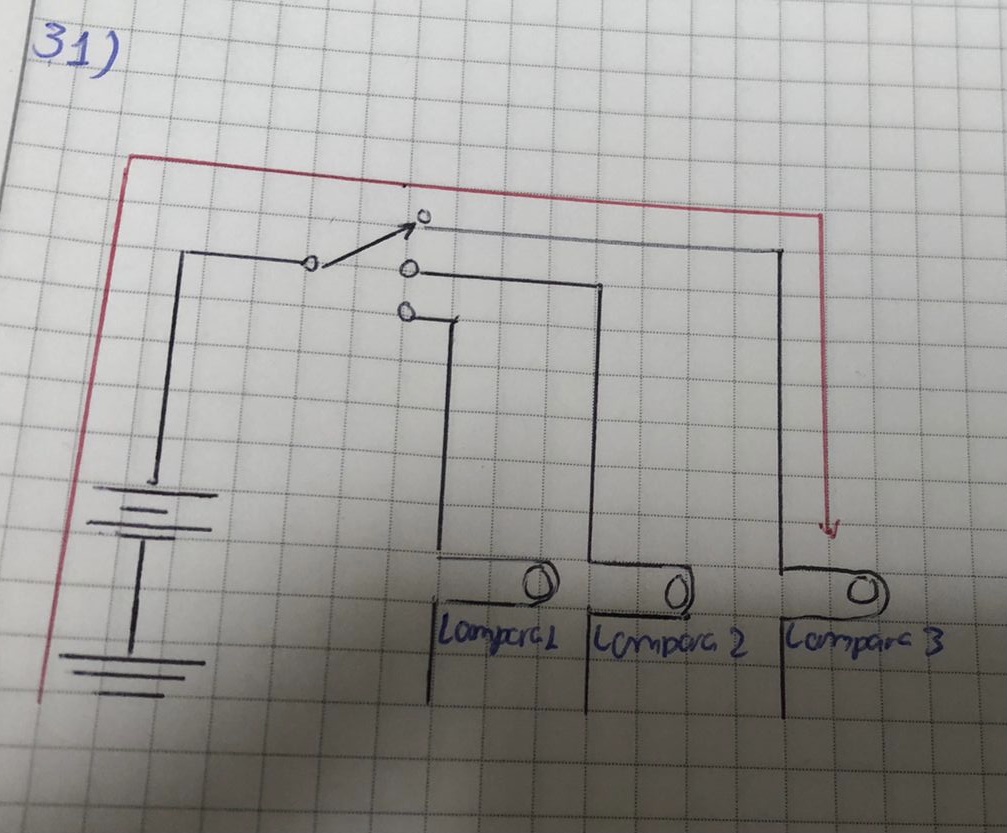 31)
Lampara 1
Lampara 2
Lampara 3